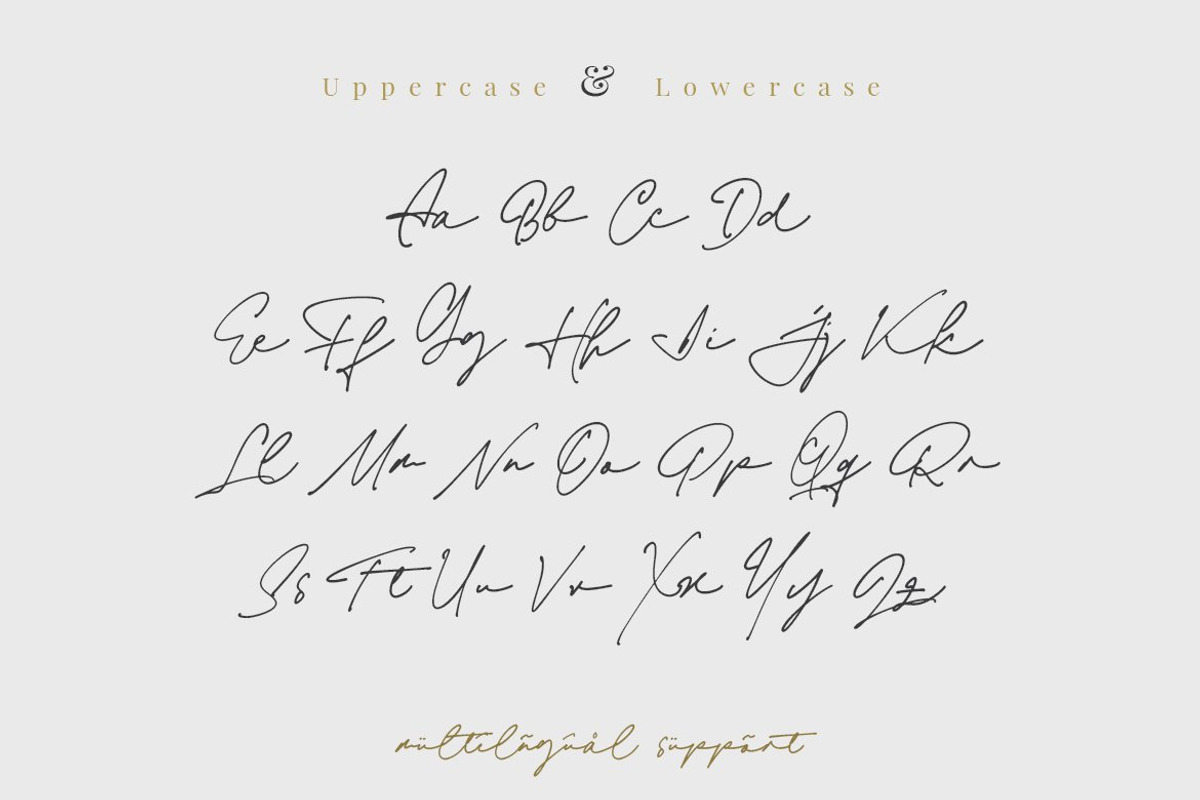 Uppercase & Lowercase
Aa Bb Cc Dd
Ee Ff Gg Hh Ii Jj Kk
Ll Mm Nn Oo Pp Qq Rr
Ss Tt Uu Vv Xx Yy Zz
mültílñgûål süppõrt